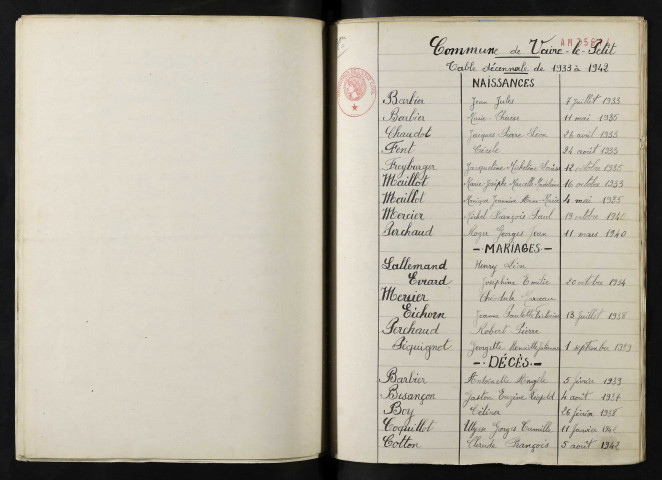 Commune de Vaire-le-Petit
Table décennale de 1933 à 1942
NAISSANCES
Barbier Jean Jules 7 juillet 1933
Barbier Marie-Thérèse 11 mai 1935
Chaudot Jacques Pierre Léon 26 avril 1933
Fent Cécile 24 août 1933
Freyburger Jacqueline Micheline 12 octobre 1935
Maillot Marie Josèphe Marcelle 16 octobre 1933
Maillot Monique Jeannine Marie 4 mai 1935
Mercier Michel François Paul 19 octobre 1940
Perchaud Roger Georges Jean 11 mars 1940
- MARIAGES -
Lallemand Henry Léon
Evrard Joséphine Emilie 20 octobre 1934
Mercier
Eichorn Jeanne Paulette 13 juillet 1938
Perchaud Robert Pierre
Piquignot Georgette Henriette 1 septembre 1939
- DÉCÈS -
Barbier Antoinette Angèle 5 février 1939
Besançon Gaston Eugène Léopold 4 août 1937
Boy Céline 26 février 1938
Coquillot Ulysse Georges Camille 11 janvier
Cotton Claude François 5 août 1942